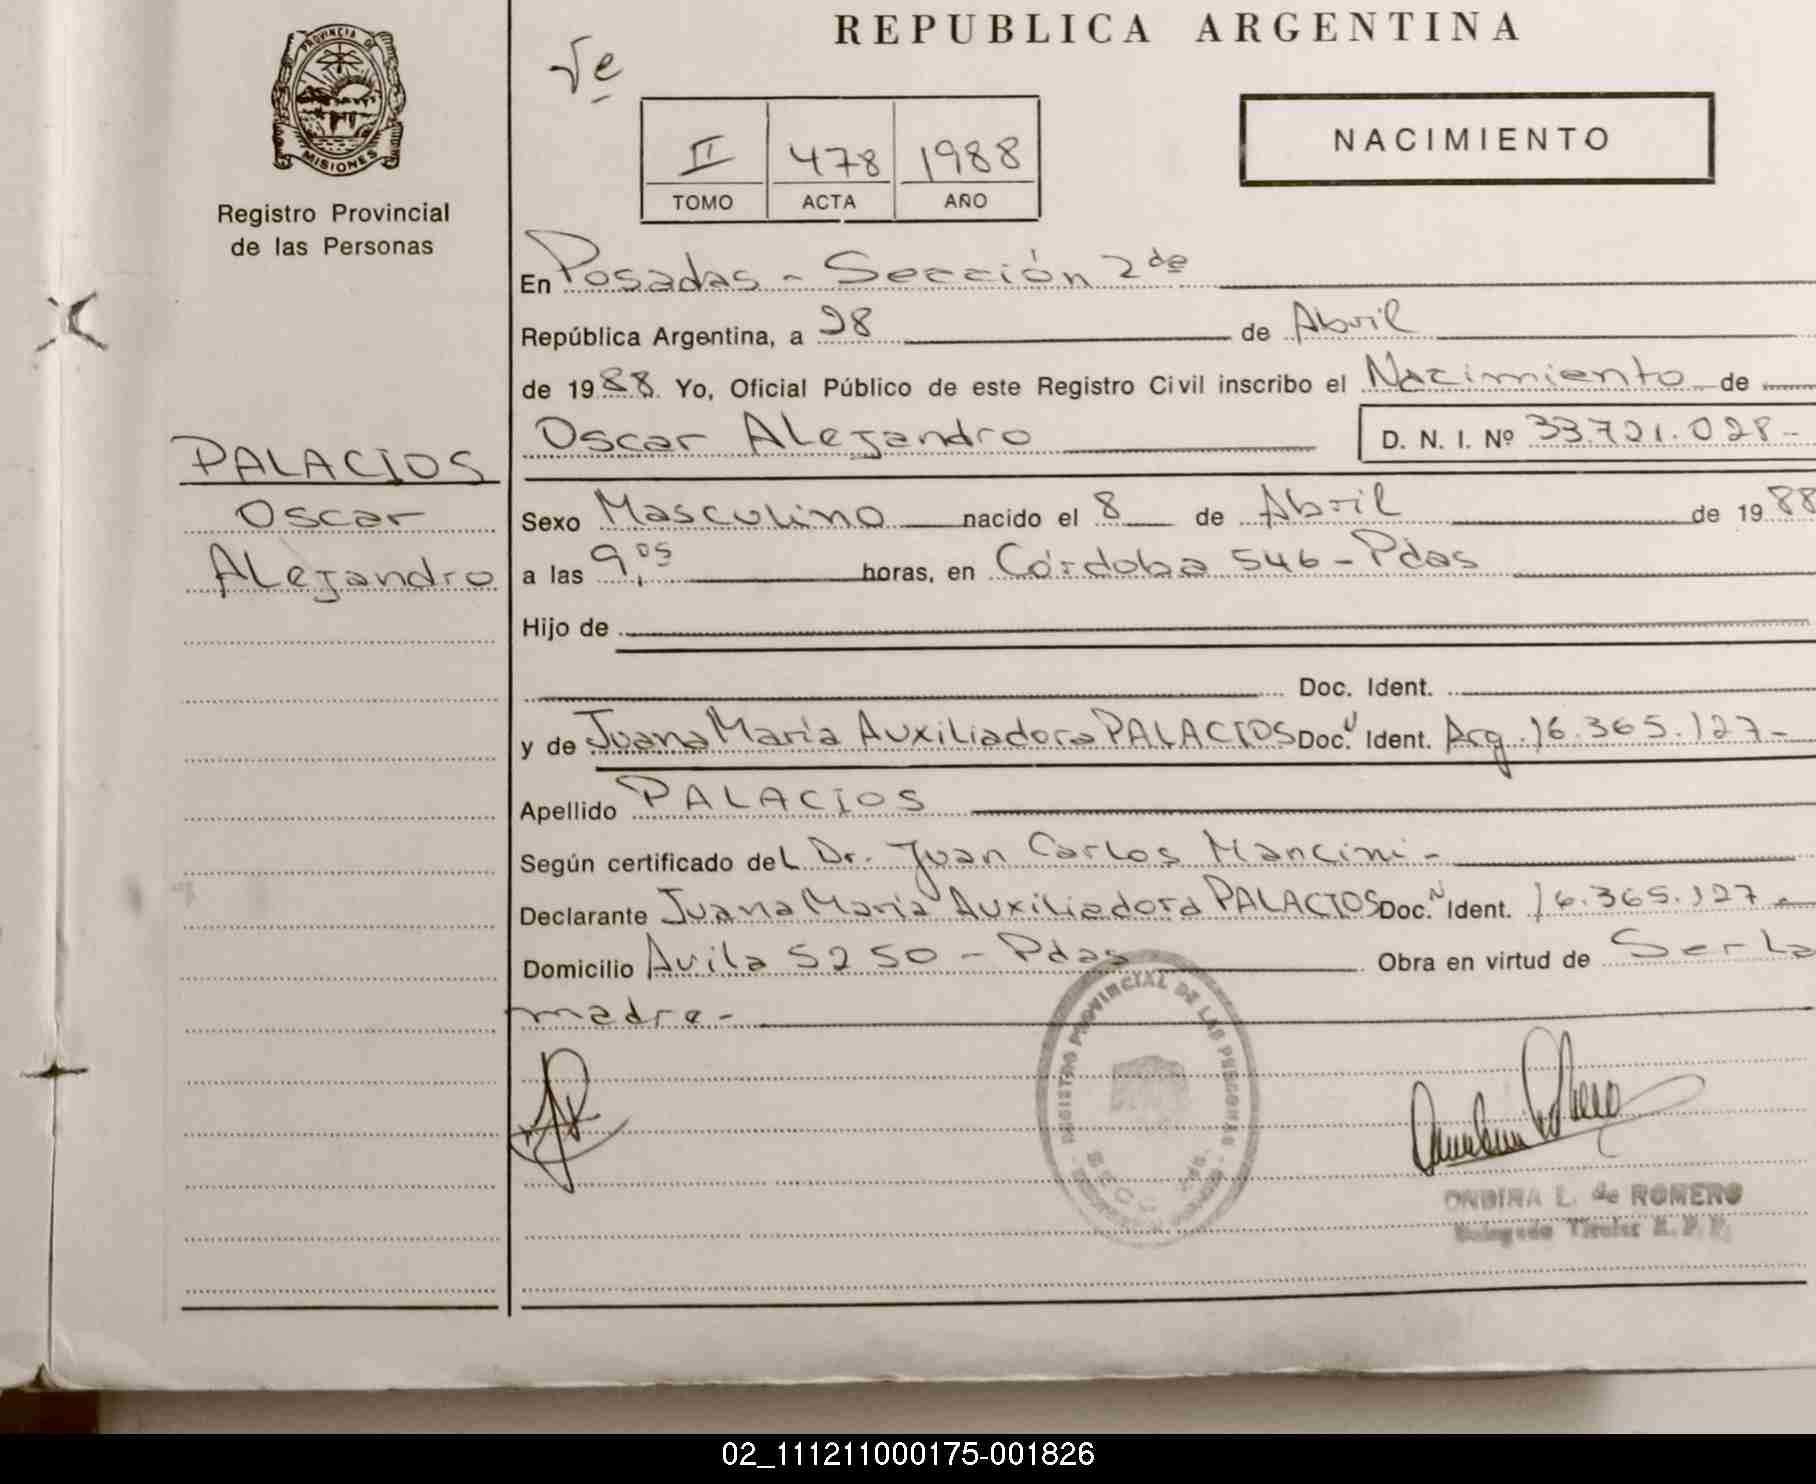 REPUBLICA ARGENTINA
PROVINCIA DE
MISIONES
Registro Provincial
de las Personas
II 478 1988
TOMO ACTA AÑO
NACIMIENTO
En Posadas - Sección 2da
República Argentina, a 28 de Abril
de 1988 Yo, Oficial Público de este Registro Civil inscribo el Nacimiento de
Oscar Alejandro D. N. I. Nº 33.721.028-
PALACIOS
Oscar
Alejandro
Sexo Masculino nacido el 8 de Abril de 1988
a las 9,05 horas, en Córdoba 546 - Pdas
Hijo de
Doc. Ident.
y de Juana María Auxiliadora PALACIOS Doc. Ident. Arg. 16.365.127-
Apellido PALACIOS
Según certificado del Dr. Juan Carlos Mancini -
Declarante Juana María Auxiliadora PALACIOS Doc. Ident. 16.365.127-
Domicilio Avila 5250 - Pdas Obra en virtud de Ser La
madre -
REGISTRO PROVINCIAL DE LAS PERSONAS
SECC. 2da.
ONDINA L. de ROMERO
Delegado Titular R. P. P.
02_111211000175-001826